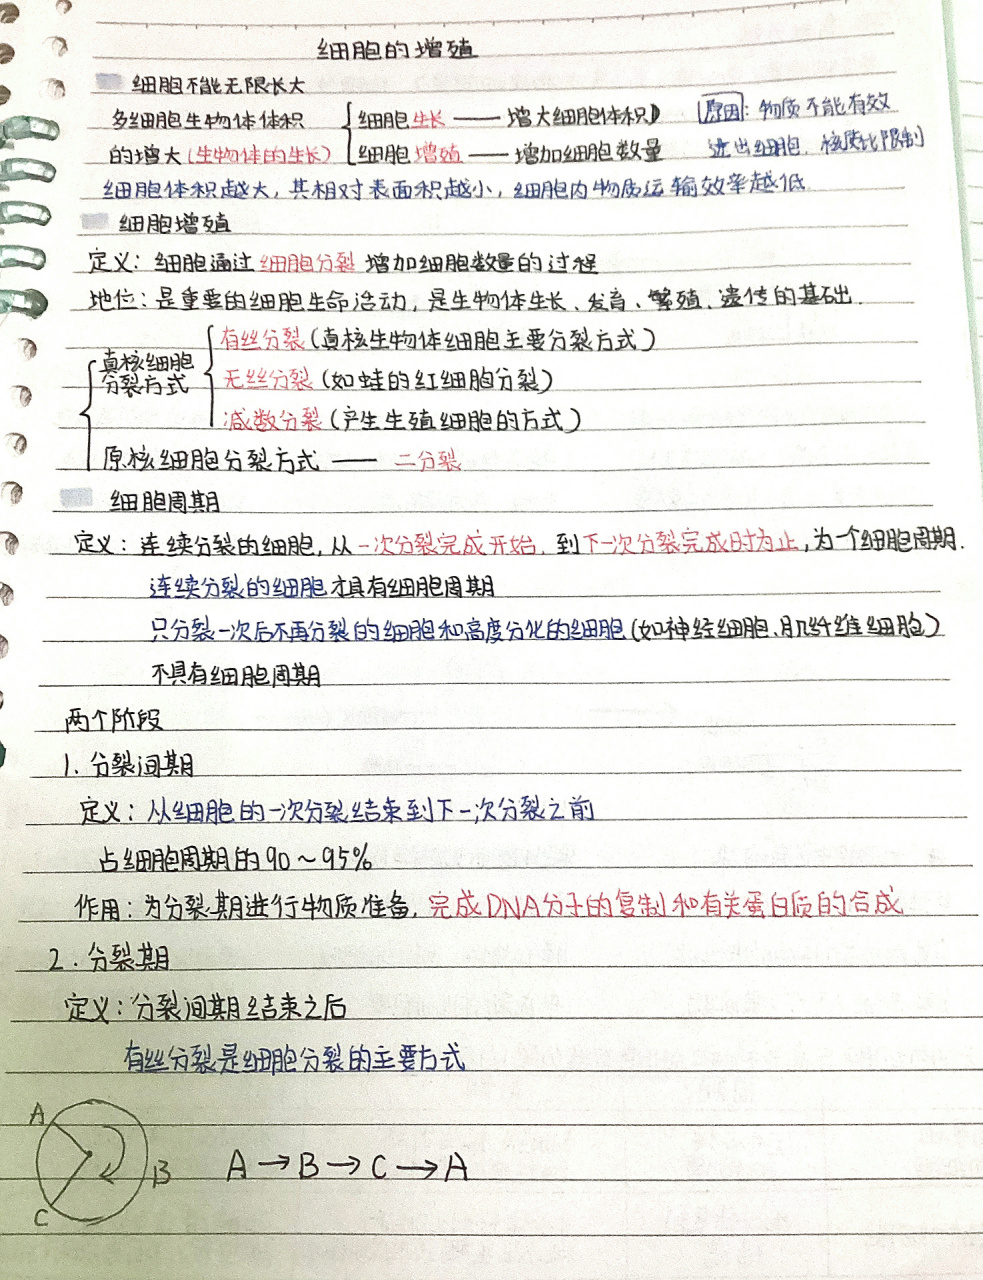 细胞的增殖
细胞不能无限长大
多细胞生物体体积 细胞生长 —— 增大细胞体积 原因: 物质不能有效
的增大(生物体的生长) 细胞增殖 —— 增加细胞数量 进出细胞. 核质比限制
细胞体积越大, 其相对表面积越小, 细胞内物质运输效率越低.
细胞增殖
定义: 细胞通过细胞分裂增加细胞数量的过程
地位: 是重要的细胞生命活动, 是生物体生长、发育、繁殖、遗传的基础.
有丝分裂(真核生物体细胞主要分裂方式)
真核细胞
分裂方式 无丝分裂(如蛙的红细胞分裂)
减数分裂(产生生殖细胞的方式)
原核细胞分裂方式 —— 二分裂
细胞周期
定义: 连续分裂的细胞, 从一次分裂完成开始, 到下一次分裂完成时为止, 为一个细胞周期.
连续分裂的细胞才具有细胞周期
只分裂一次后不再分裂的细胞和高度分化的细胞(如神经细胞、肌纤维细胞)
不具有细胞周期
两个阶段
1. 分裂间期
定义: 从细胞的一次分裂结束到下一次分裂之前
占细胞周期的90~95%
作用: 为分裂期进行物质准备, 完成DNA分子的复制和有关蛋白质的合成
2. 分裂期
定义: 分裂间期结束之后
有丝分裂是细胞分裂的主要方式
A
B A→B→C→A
C